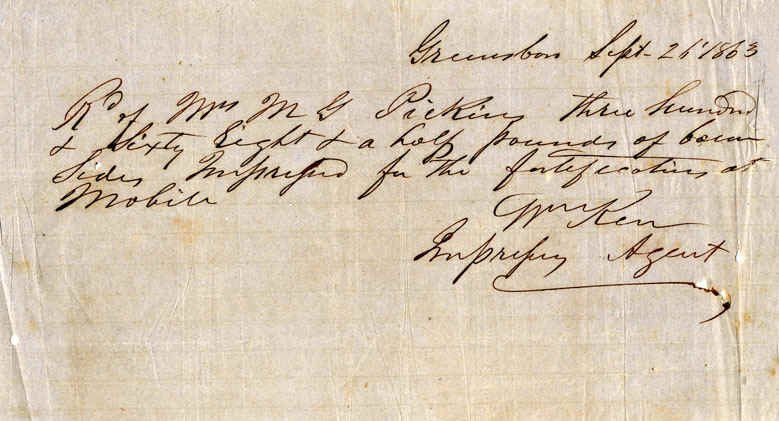 Greensboro Sept. 26th 1863
Rd of Mrs M G Pickens three hundred
& Sixty Eight & a half pounds of bacon
Sides Impressed for the fortifications at
Mobile
Wm Kerr
Impressing Agent